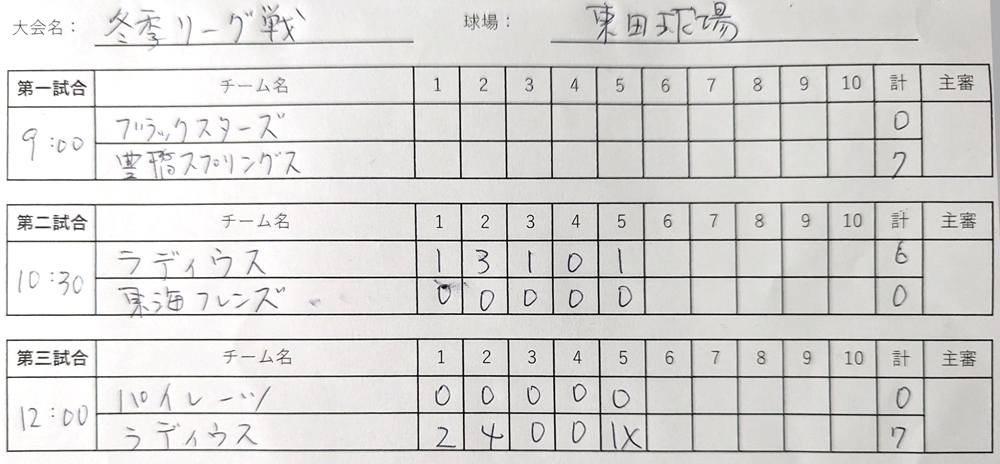 大会名： 冬季リーグ戦 球場： 東田球場
第一試合 チーム名 1 2 3 4 5 6 7 8 9 10 計 主審
9:00 ブラックスターズ 0
豊橋スプリングス 7
第二試合 チーム名 1 2 3 4 5 6 7 8 9 10 計 主審
10:30 ラディウス 1 3 1 0 1 6
東海フレンズ 0 0 0 0 0 0
第三試合 チーム名 1 2 3 4 5 6 7 8 9 10 計 主審
12:00 パイレーツ 0 0 0 0 0 0
ラディウス 2 4 0 0 1X 7